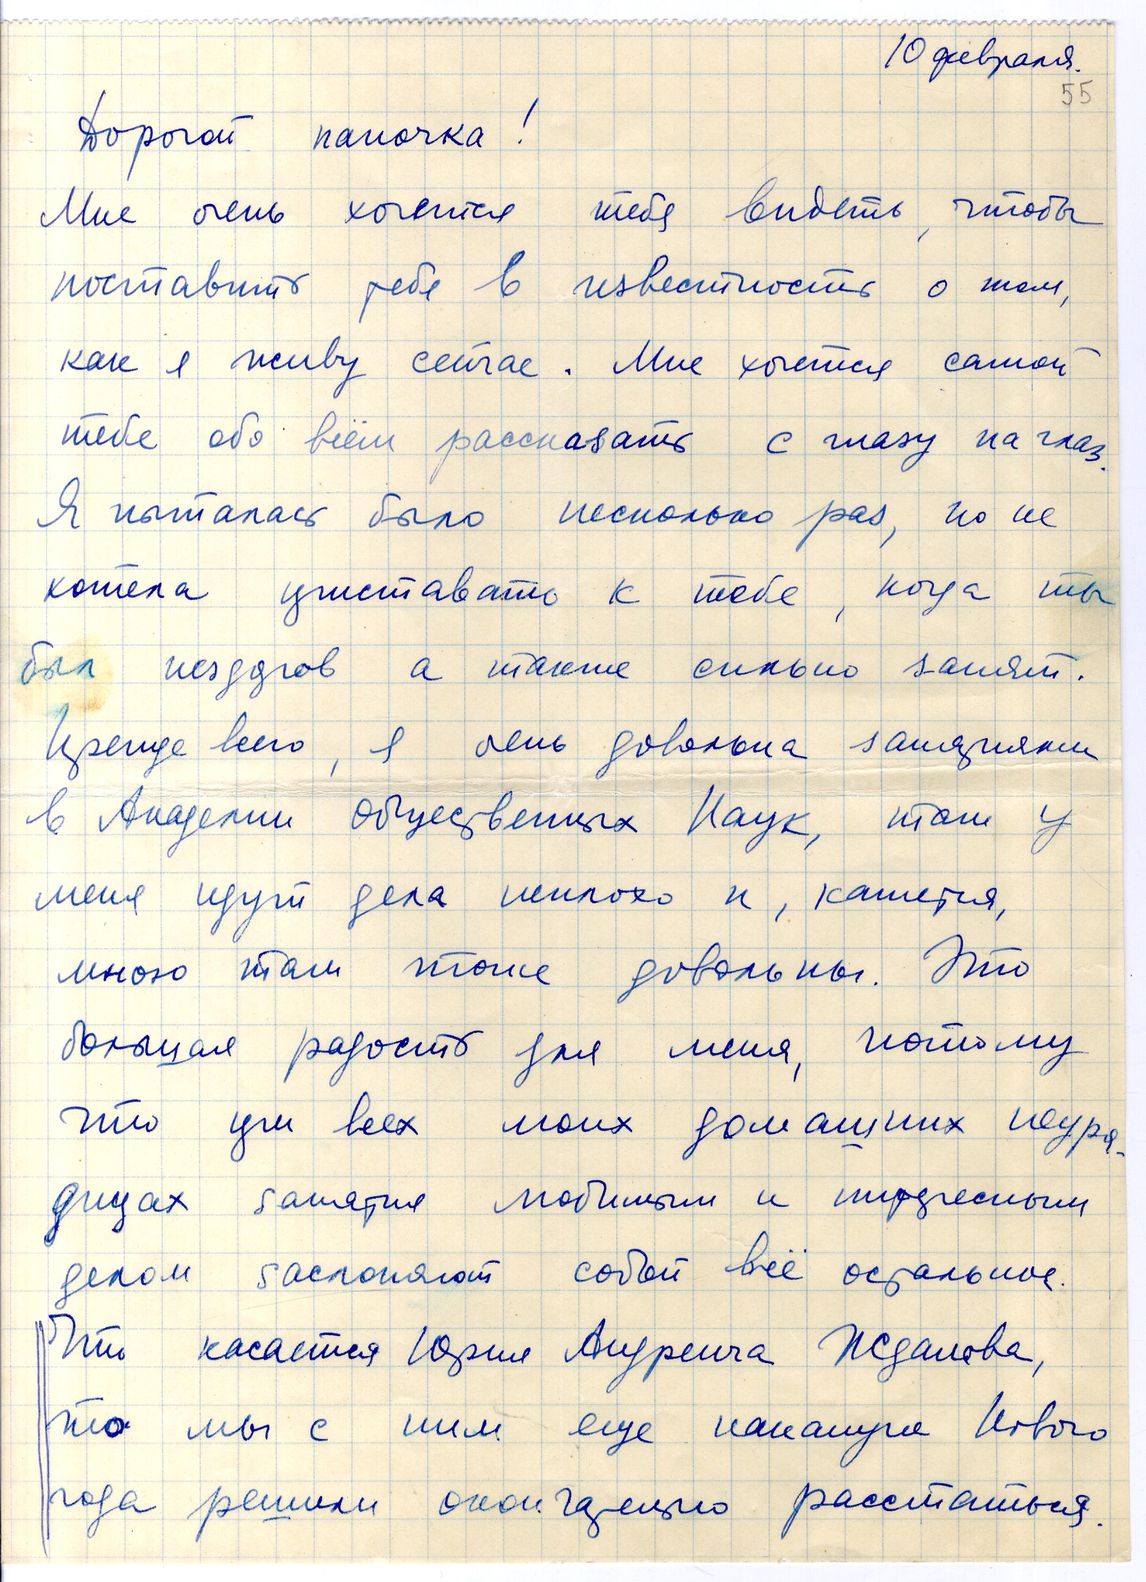 10 февраля.
55
Дорогой папочка!
Мне очень хочется тебя видеть, чтобы
поставить тебя в известность о том,
как я живу сейчас. Мне хочется самой
тебе обо всём рассказать с глазу на глаз.
Я пыталась было несколько раз, но не
хотела приставать к тебе, когда ты
был нездоров а также сильно занят.
Прежде всего, я очень довольна занятиями
в Академии Общественных Наук, там у
меня идут дела неплохо и, кажется,
мною там тоже довольны. Это
большая радость для меня, потому
что при всех моих домашних неуря-
дицах занятия любимым и интересным
делом заслоняют собой всё остальное.
Что касается Юрия Андреича Жданова,
то мы с ним еще накануне Нового
года решили окончательно расстаться.